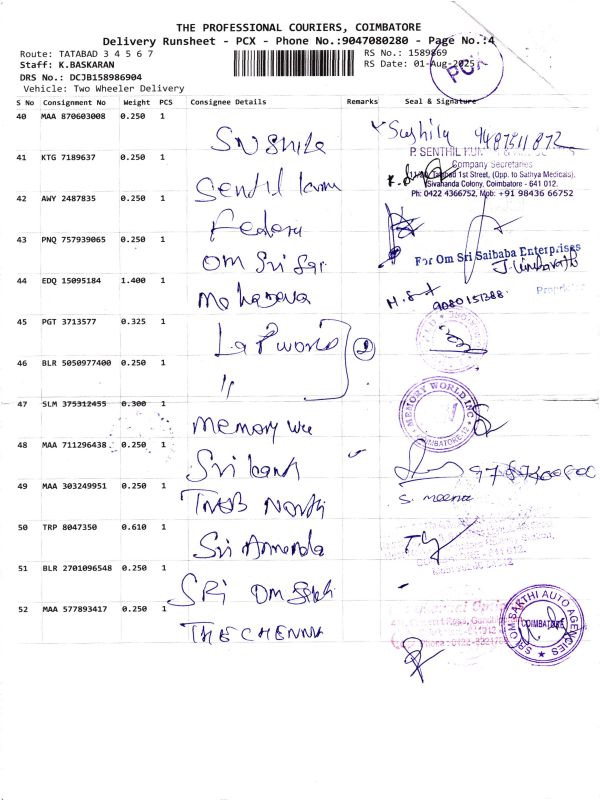 THE PROFESSIONAL COURIERS, COIMBATORE
Delivery Runsheet - PCX - Phone No.:9047080280 - Page No.:4
Route: TATABAD 3 4 5 6 7
RS No.: 1589869
Staff: K.BASKARAN
RS Date: 01-Aug-2025
PCX
DRS No.: DCJB158986904
Vehicle: Two Wheeler Delivery
S No Consignment No Weight PCS Consignee Details Remarks Seal & Signature
40 MAA 870603008 0.250 1
Sushila
Sushila
41 KTG 7189637 0.250 1
Senthil kum
P. SENTHIL
Company Secretaries
1st Street, (Opp. to Sathya Medicals),
Sivananda Colony, Coimbatore - 641 012.
Ph: 0422 4366752, Mob: +91 98436 66752
42 AWY 2487835 0.250 1
Federal
43 PNQ 757939065 0.250 1
Om Sri Sai
For Om Sri Saibaba Enterprises
44 EDQ 15095184 1.400 1
Mahadeva
9080151388
45 PGT 3713577 0.325 1
Lap world
2
46 BLR 5050977400 0.250 1
"
47 SLM 375312455 0.300 1
Memory
MEMORY WORLD INC
COIMBATORE-12
48 MAA 711296438 0.250 1
Sri
49 MAA 303249951 0.250 1
TNEB North
S. meena
50 TRP 8047350 0.610 1
Sri Ananda
51 BLR 2701096548 0.250 1
SRI OM Sakthi
52 MAA 577893417 0.250 1
THE CHENNA
SRI OM SAKTHI AUTO AGENCIES
COIMBATORE